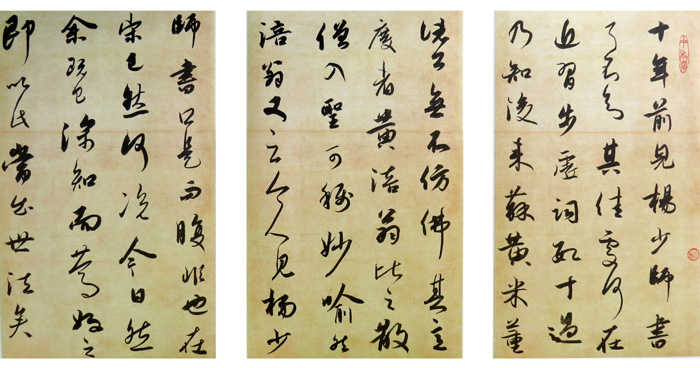 十年前見楊少師書
了不知其佳處何在
近習步虛詞數十過
乃知後來蘇黃米董
諸公無不仿佛其意
度者黃涪翁比之散
僧入聖可稱妙喻然
涪翁又言今人見楊少
師書口是而腹非也在
宋已然何況今日然
余既已深知而篤好之
即以此當出世法矣